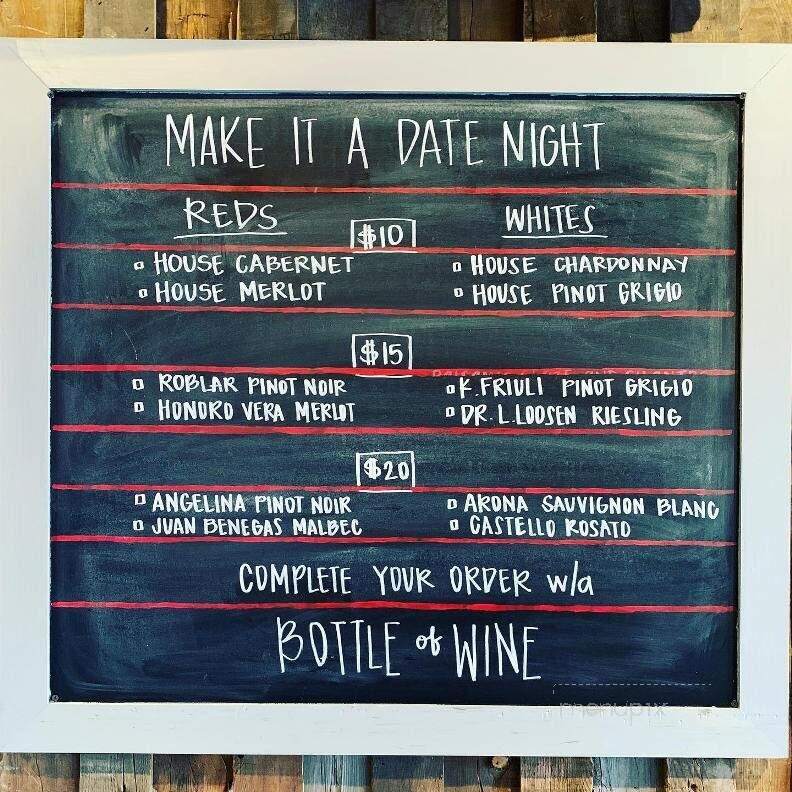 MAKE IT A DATE NIGHT
REDS
WHITES
$10
HOUSE CABERNET
HOUSE CHARDONNAY
HOUSE MERLOT
HOUSE PINOT GRIGIO
$15
ROBLAR PINOT NOIR
K. FRIULI PINOT GRIGIO
HONORO VERA MERLOT
DR. L. LOOSEN RIESLING
$20
ANGELINA PINOT NOIR
ARONA SAUVIGNON BLANC
JUAN BENEGAS MALBEC
CASTELLO ROSATO
COMPLETE YOUR ORDER w/a
BOTTLE of WINE
menupix